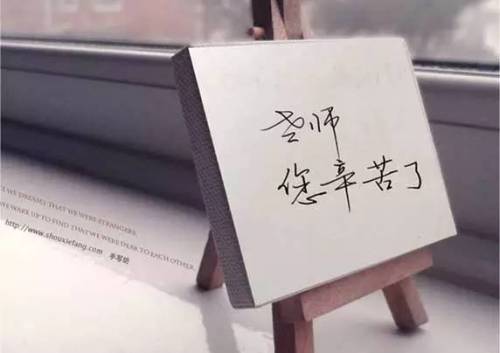 老师
您辛苦了
WE DREAMT THAT WE WERE STRANGERS
WE WAKE UP TO FIND THAT WE WERE DEAR TO EACH OTHER.
http://www.shouxiefang.com 手写坊